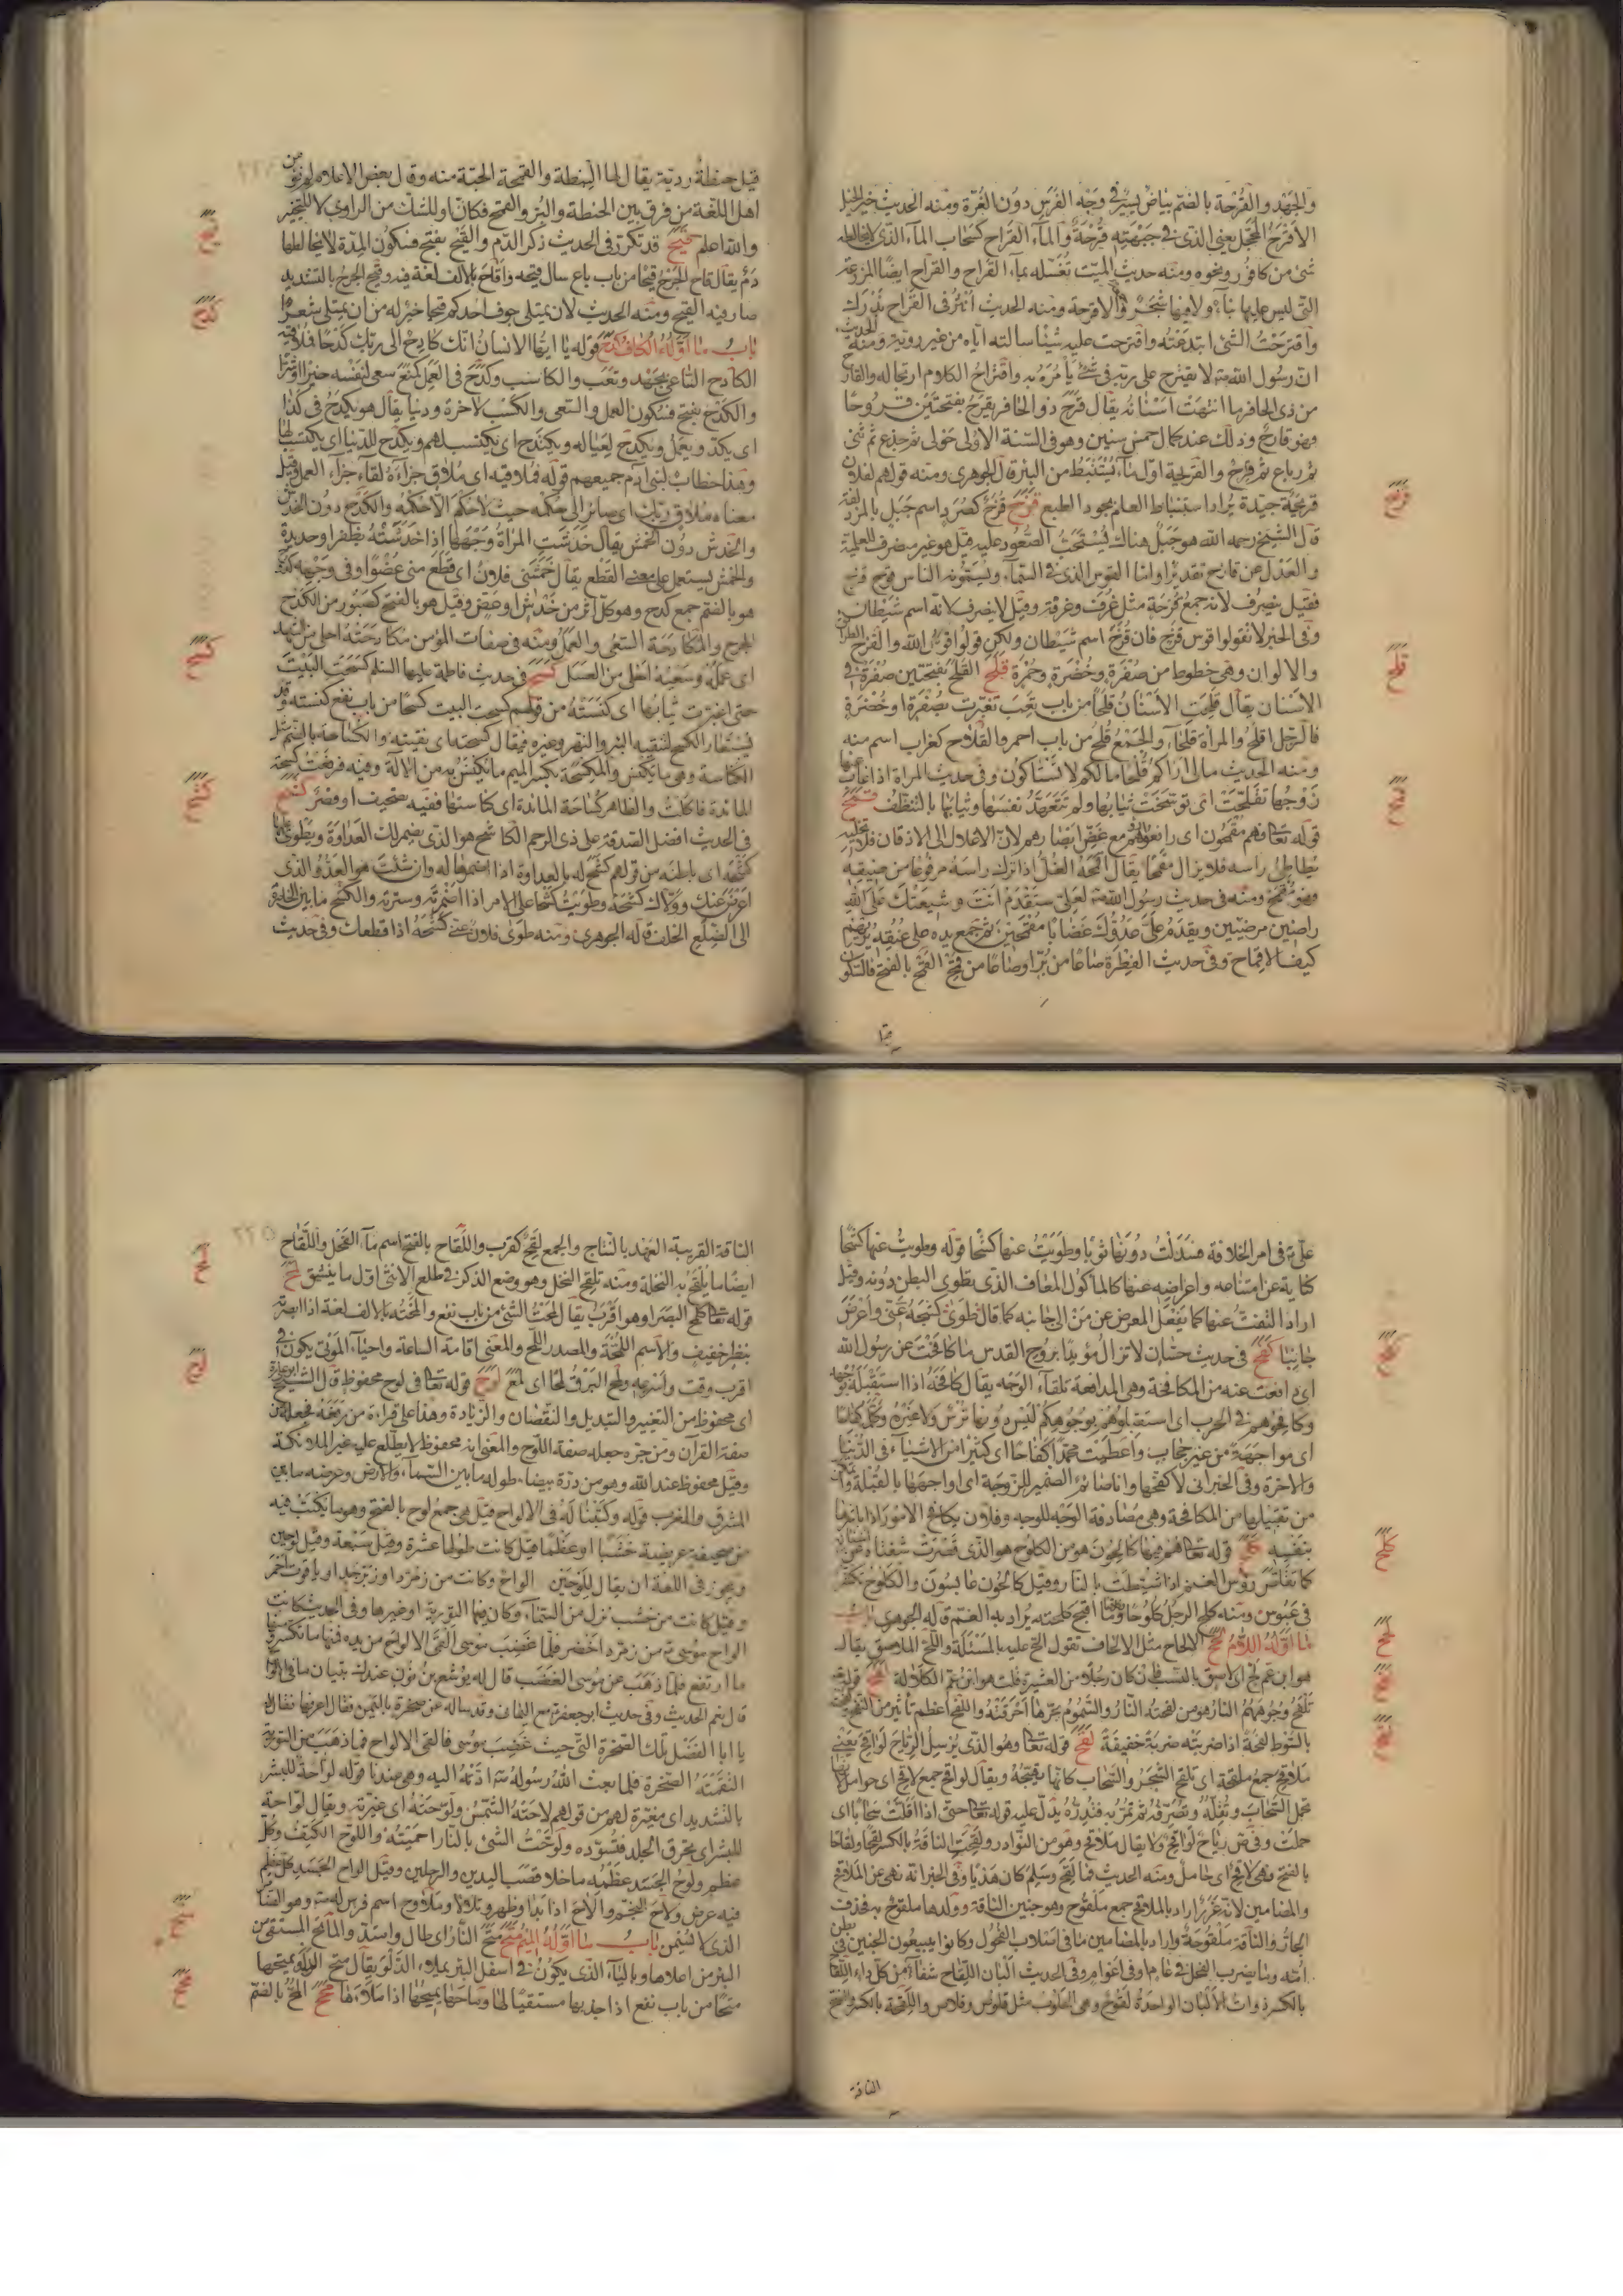 والجهد والقُرْحة بالضم بياض يسير في وجه الفرس دون الغرة ومنه الحديث خير الخيل
الأقرح المحجل يعني الذي في جبهته قرحة والمآء القراح كسحاب المآء الذي لم يخالطه
شئ من كافور ونحوه ومنه حديث الميت تغسله بمآء القراح والقراح ايضًا المزرعة
التي ليس عليها بنآء ولا فيها شجر والاقرحة ومنه الحديث
واقترحت الشئ ابتدعته واقترحت عليه شيئًا سألته اياه من غير روية ومنه الحديث
ان رسول الله لا يقترح على ربه في شئ يأمره به واقتراح الكلام ارتجاله والقارح
من ذي الحافر ما انتهت اسنانه يقال قرح ذو الحافر يقرح بفتحتين قروحًا
وهو قارح وذلك عند كمال خمس سنين وهو في السنة الاولى حولي ثم جذع ثم ثني
ثم رباع ثم قارح والقريحة اول مآء يستنبط من البئر قال الجوهري ومنه قولهم لفلان
قريحة جيدة يراد استنباط العلم بجود الطبع قزح قزح كصرد اسم جبل بالمزدلفة
قال الشيخ رحمه الله هو جبل هناك يستحب الصعود عليه قيل هو غير منصرف للعلمية
والعدل عن قازح تقديرًا واما القوس الذي في السمآء ويسمونه الناس قوس قزح
فقيل ينصرف لانه جمع قزحة مثل غرف وغرفة وقيل لا ينصرف لانه اسم شيطان
وفي الخبر لا تقولوا قوس قزح فان قزح اسم شيطان ولكن قولوا قوس الله والقزح الطرائق
والالوان وهي خطوط من صفرة وخضرة وحمرة قلح القلح بفتحتين صفرة في
الأسنان يقال قلحت الأسنان قلحًا من باب تعب تغيرت بصفرة او خضرة
فالرجل اقلح والمرأة قلحآء والجمع قلح من باب احمر والقلاح كغراب اسم منه
ومنه الحديث مالي اراكم قلحا مالكم لا تستاكون وفي حديث المرأة اذا غاب عنها
زوجها تقلحت اي توسخت ثيابها ولم تتعهد نفسها وثيابها بالتنظف قمح
قوله تعالى فهم مقمحون اي رافعوا رؤسهم مع غض ابصارهم لان الاغلال الى الاذقان فلا تخليه
يطاطئ راسه فلا يزال مقمحًا يقال اقمحه الغل اذا ترك راسه مرفوعًا من ضيقه
فهو مقمح ومنه في حديث رسول الله لعلي ستقدم انت وشيعتك على الله
راضين مرضيين ويقدم على عدوك غضابًا مقمحين ثم جمع يده على عنقه يريهم
كيف الاقماح وفي حديث الفطرة صاعًا من بر او صاعًا من قمح القمح بالفتح فالسكون
قيل حنطة ردية يقال لها النبطة والقمحة الحبة منه وقال بعض الاعلام لم نر من
اهل اللغة من فرق بين الحنطة والبر والقمح فكان او للشك من الراوي لا للتخيير
والله اعلم قيح قد تكرر في الحديث ذكر الدم والقيح بفتح فسكون المدة لا يخالطها
دم يقال قاح الجرح قيحًا من باب باع سال قيحه واقاح بالالف لغة فيه وقيح الجرح بالتشديد
صار فيه القيح ومنه الحديث لان يمتلي جوف احدكم قيحًا خير له من ان يمتلي شعرًا
باب ما اوله الكاف كدح قوله يا ايها الانسان انك كادح الى ربك كدحًا فملاقيه
الكادح الساعي بجهد وتعب والكاسب وكدح في العمل كمنع سعى لنفسه خيرًا او شرًا
والكدح بفتح فسكون العمل والسعي والكسب لآخرة ودنيا يقال هو يكدح في كذا
اي يكد ويعمل ويكدح لعياله ويكتدح اي يكتسب لهم ويكدح للدنيا اي يكتسب لها
وهذا خطاب لبني آدم جميعهم قوله فملاقيه اي ملاق جزآءه لقآء جزآء العمل وقيل
معناه ملاق ربك اي صائر الى حكمه حيث لا حكم الا حكمه والكدح دون الخدش
والخدش دون الخمش يقال خدشت المرأة وجهها اذا خدشته بظفر او حديدة
والخمش يستعمل على معنى القطع يقال خمشني فلان اي قطع مني عضوًا وفي وجهه كدوح
هو بالضم جمع كدح وهو كل اثر من خدش او عض وقيل هو بالفتح كصبور من الكدح
الجرح والمكادحة السعي والعمل ومنه في صفات المؤمن مكادحته احلى من الشهد
اي عمله وسعيه احلى من العسل كسح في حديث فاطمة عليها السلم كسحت البيت
حتى اغبرت ثيابها اي كنسته من قولهم كسحت البيت كسحًا من باب نفع كنسته وقد
يستعار الكسح لتنقية البئر والنهر وغيره فيقال كسحته اي نقيته والكساحة بالضم مثل
الكناسة وهي ما يكنس والمكسحة بكسر الميم ما يكنس به من الآلة وفيه
المائدة فاكلت والظاهر كساحة المائدة اي كناستها ففيه تصحيف او قصر كشح
في الحديث افضل الصدقة على ذي الرحم الكاشح هو الذي يضمر لك العداوة ويطوي عليها
كشحه اي باطنه من قولهم كشح له بالعداوة اذا اضمرها له وان شئت هو العدو الذي
اعرض عنك وولاك كشحه وطويت كشحا على الامر اذا اضمرته وسترته والكشح ما بين الخاصرة
الى الضلع الخلف قاله الجوهري ومنه طوى فلان عني كشحه اذا قطعك وفي حديث
علي في امر الخلافة فسدلت دونها ثوبا وطويت عنها كشحا قوله وطويت عنها كشحا
كناية عن امتناعه واعراضه عنها كالمأكول المعاف الذي يطوي البطن دونه وقيل
اراد التفت عنها كما يفعل المعرض عن من الى جانبه كما قال طوى كشحه عني واعرض
جانبًا كفح في حديث حسان لا تزال مؤيدا بروح القدس ما كافحت عن رسول الله
اي دافعت عنه من المكافحة وهي المدافعة تلقآء الوجه يقال كافحه اذا استقبله بوجهه
وكافحوهم في الحرب اي استقبلوهم بوجوههم ليس دونها ترس ولا غيره وكلمه كفاحًا
اي مواجهة من غير حجاب واعطيت محمدا كفاحا اي كثيرًا من الاشيآء في الدنيا
والاخرة وفي الخبر اني لاكفحها وانا صائم الضمير للزوجة اي اواجهها بالقبلة
من تقبيلها من المكافحة وهي مصادفة الوجه للوجه وفلان يكافح الامور اذا باشرها
بنفسه كلح قوله تعالى وهم فيها كالحون هو من الكلوح هو الذي قصرت شفتاه عن اسنانه
كما تقلص رؤس الغنم اذا شيطت بالنار وقيل كالحون عابسون والكلوح تكشر
في عبوس ومنه كلح الرجل كلوحًا وما اقبح كلحته يراد به الفم قاله الجوهري باب
ما اوله اللام لحح الالحاح مثل الالحاف تقول الح عليه بالمسئلة والح الملاصق يقال
هو ابن عم لح اي لاصق بالنسب فان كان رجلا من العشيرة قلت هو ابن عم الكلالة لفح قوله
تلفح وجوههم النار هو من لفحته النار والسموم بحرها احرقته واللفح اعظم تأثيرًا من النفح
بالسوط لفحة اذا ضربته ضربة خفيفة لقح قوله تعالى وهو الذي يرسل الرياح لواقح يعني
ملاقح جمع ملقحة اي تلقح الشجر والسحاب كانها تهيجه ويقال لواقح جمع لاقح اي حوامل لانها
تحمل السحاب وتقله وتصرفه ثم تمر به فتدره يدل عليه قوله تعالى حتى اذا اقلت سحابًا اي
حملت وفي ص رياح لواقح ولا يقال ملاقح وهو من النوادر ولقحت الناقة بالكسر لقحًا ولقاحًا
بالفتح وهي لاقح اي حامل ومنه الحديث فما لقح وسلم كان هديًا وفي الخبر انه نهى عن الملاقح
والمضامين لانه غرر اراد بالملاقح جمع ملقوح وهو جنين الناقة وولدها ملقوح به فحذف
الجار والناقة ملقوحة واراد بالمضامين ما في اصلاب الفحول وكانوا يبيعون الجنين في بطن
امه وما يضرب الفحل في عام او في اعوام وفي الحديث البان اللقاح شفآء من كل دآء اللقاح
بالكسر ذوات الألبان الواحدة لقوح وهي الحلوب مثل قلوص وقلاص واللقحة بالكسر والفتح
الناقة
الناقة القريبة العهد بالنتاج والجمع لقح كقرب واللقاح بالفتح اسم مآء الفحل واللقاح
ايضًا ما يلقح به النخلة ومنه تلقيح النخل وهو وضع الذكر في طلع الانثى اول ما ينشق لمح
قوله تعالى كلمح البصر او هو اقرب يقال لمحت الشئ من باب نفع والمحته بالالف لغة اذا ابصرته
بنظر خفيف والاسم اللمحة والمصدر اللمح والمعنى اقامة الساعة واحيآء الموتى يكون في
اقرب وقت واسرعه ولمح البرق لمحًا اي لمع لوح قوله تعالى في لوح محفوظ قال الشيخ ابو علي
اي محفوظ من التغيير والتبديل والنقصان والزيادة وهذا على قراءة من رفعه فجعله من
صفة القرآن ومن جره جعله صفة اللوح والمعنى انه محفوظ لا يطلع عليه غير الملائكة
وقيل محفوظ عند الله وهو من درة بيضآء طوله ما بين السمآء والارض وعرضه ما بين
المشرق والمغرب قوله وكتبنا له في الالواح قيل هي جمع لوح بالفتح وهو ما يكتب فيه
من صحيفة عريضة خشبًا او عظمًا قيل كانت طولها عشرة وقيل سبعة وقيل لوحين
ويجوز في اللغة ان يقال للوحين الواح وكانت من زمرد او زبرجد او ياقوت احمر
وقيل كانت من خشب نزل من السمآء وكان فيها التورية او غيرها وفي الحديث كانت
الواح موسى من زمرد اخضر فلما غضب موسى القى الالواح من يده فمنها ما تكسر ومنها
ما ارتفع فلما ذهب عن موسى الغضب قال له يوشع بن نون عندك تبيان ما في الالواح
قال نعم الحديث وفي حديث ابو جعفر مع اليماني وقد ساله عن صخرة باليمن فقال اعرفها فقال له
يا ابا الفضل تلك الصخرة التي حيث غضب موسى فالقى الالواح فما ذهب من التورية
التقمته الصخرة فلما بعث الله رسوله ادته اليه وهي عندنا قوله لواحة للبشر
بالتشديد اي مغيرة لهم من قولهم لاحته الشمس ولوحته اي غيرته ويقال لواحة
للبشر اي تحرق الجلد فتسوده ولوحت الشئ بالنار احميته واللوح الكتف وكل
عظم ولوح الجسد عظمه ما خلا قصب اليدين والرجلين وقيل الواح الجسد كل عظم
فيه عرض ولاح النجم والاح اذا بدا وظهر وتلألأ وملاوح اسم فرس له وهو الضامر
الذي لا يسمن باب ما اوله الميم متح متح النهار اي طال وامتد والماتح المستقي من
البئر من اعلاها وباليآء الذي يكون في اسفل البئر يملاء الدلو يقال متح الدلو يمتحها
متحًا من باب نفع اذا جذبها مستقيا لها وماحها يميحها اذا ملأها محح المح بالضم